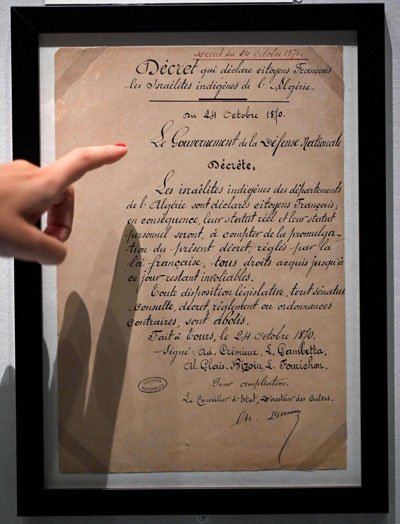 Décret du 24 Octobre 1870.
Décret qui déclare citoyens Français
les Israélites indigènes de l'Algérie.
Du 24 Octobre 1870.
Le Gouvernement de la Défense Nationale
Décrète,
Les israélites indigènes des départements
de l'Algérie sont déclarés citoyens Français;
en conséquence, leur statut réel et leur statut
personnel seront, à compter de la promulga-
tion du présent décret, réglés par la
loi française, tous droits acquis jusqu'à
ce jour restant inviolables.
Toute disposition législative, tout sénatus
Consulte, décret, règlement ou ordonnances
contraires, sont abolis.
Fait à Tours, le 24 Octobre 1870.
Signé: Ad. Crémieux, L. Gambetta,
Al. Glais-Bizoin, L. Fourichon.
Pour ampliation.
Le Conseiller d'Etat, Directeur des